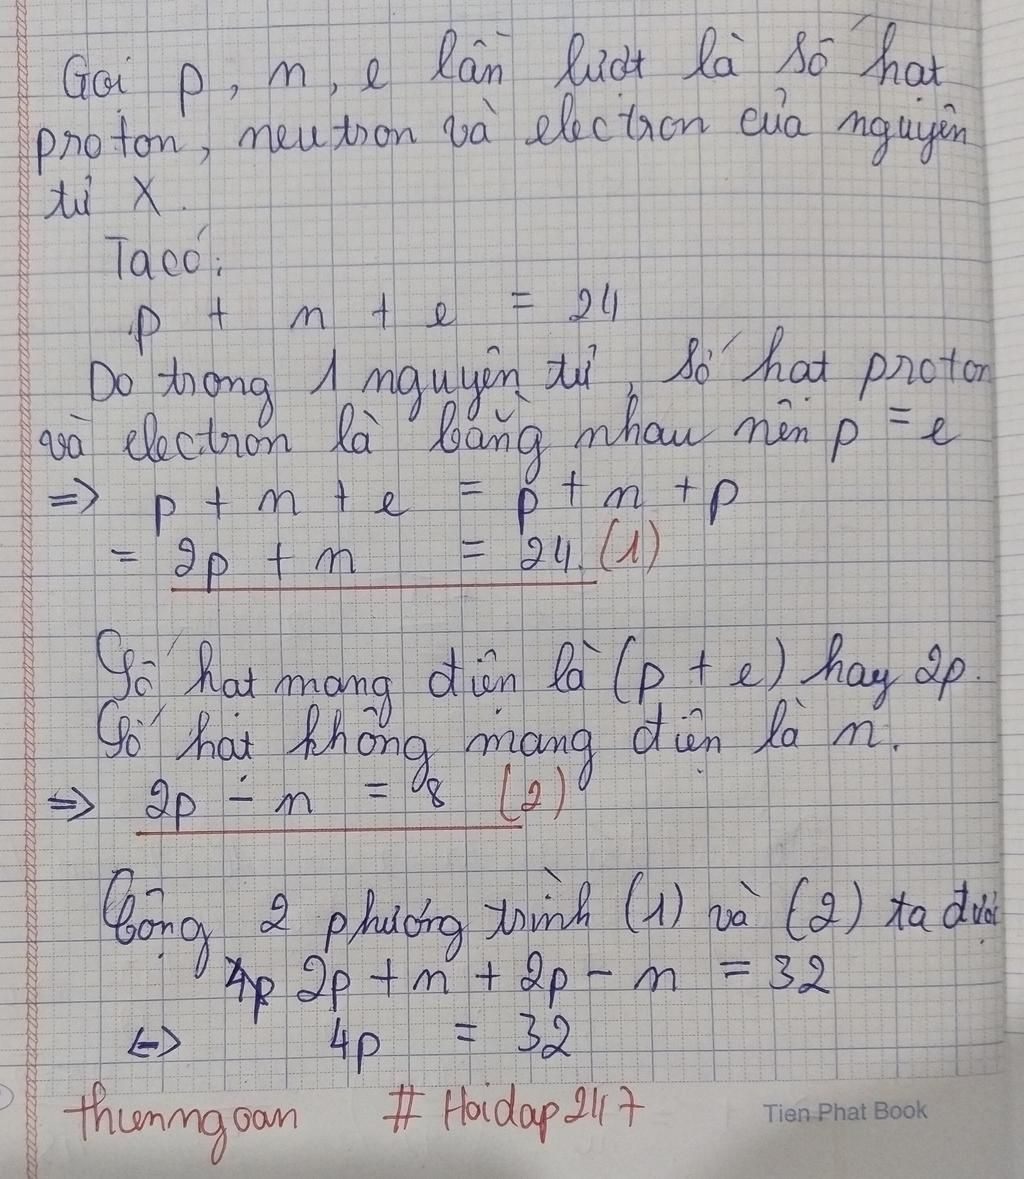 Gọi p, n, e lần lượt là số hạt
proton, neutron và electron của nguyên
tử X.
Ta có:
p + n + e = 24
Do trong 1 nguyên tử, số hạt proton
và electron là bằng nhau nên p = e
=> p + n + e = p + n + p
= 2p + n = 24. (1)
Số hạt mang điện là (p + e) hay 2p.
Số hạt không mang điện là n.
=> 2p - n = 8 (2)
Cộng 2 phương trình (1) và (2) ta được
2p + n + 2p - n = 32
<=> 4p = 32
thienngoan # Hoidap247
Tien Phat Book